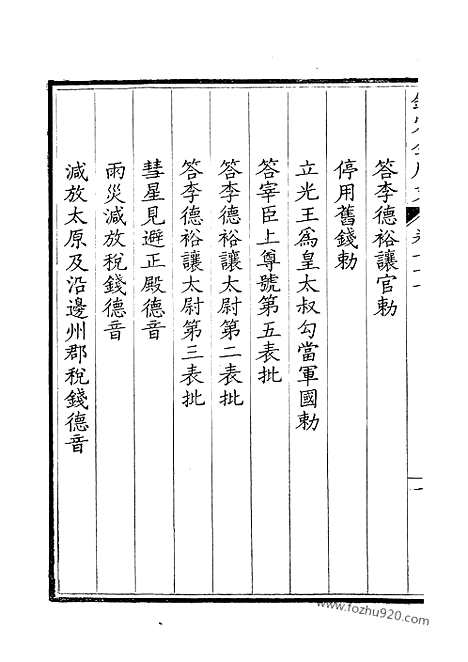 答李德裕讓官勅
停用舊錢勅
立光王爲皇太叔勾當軍國勅
答宰臣上尊號第五表批
答李德裕讓太尉第二表批
答李德裕讓太尉第三表批
彗星見避正殿德音
雨災減放稅錢德音
減放太原及沿邊州郡稅錢德音
www.fozhu920.com